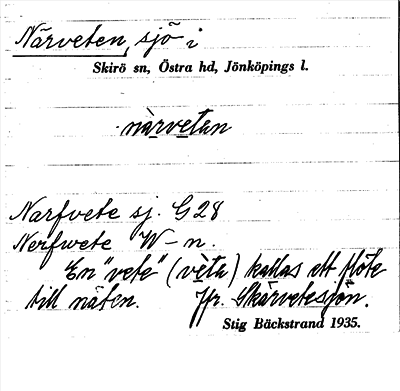 Närveten, sjö i
Skirö sn, Östra hd, Jönköpings l.
närvetan
Narfvete sj. G28
Nerfwete W-n.
En "vete" (vèta) kallas ett flöte
till näten. Jfr. Skärvetesjön.
Stig Bäckstrand 1935.